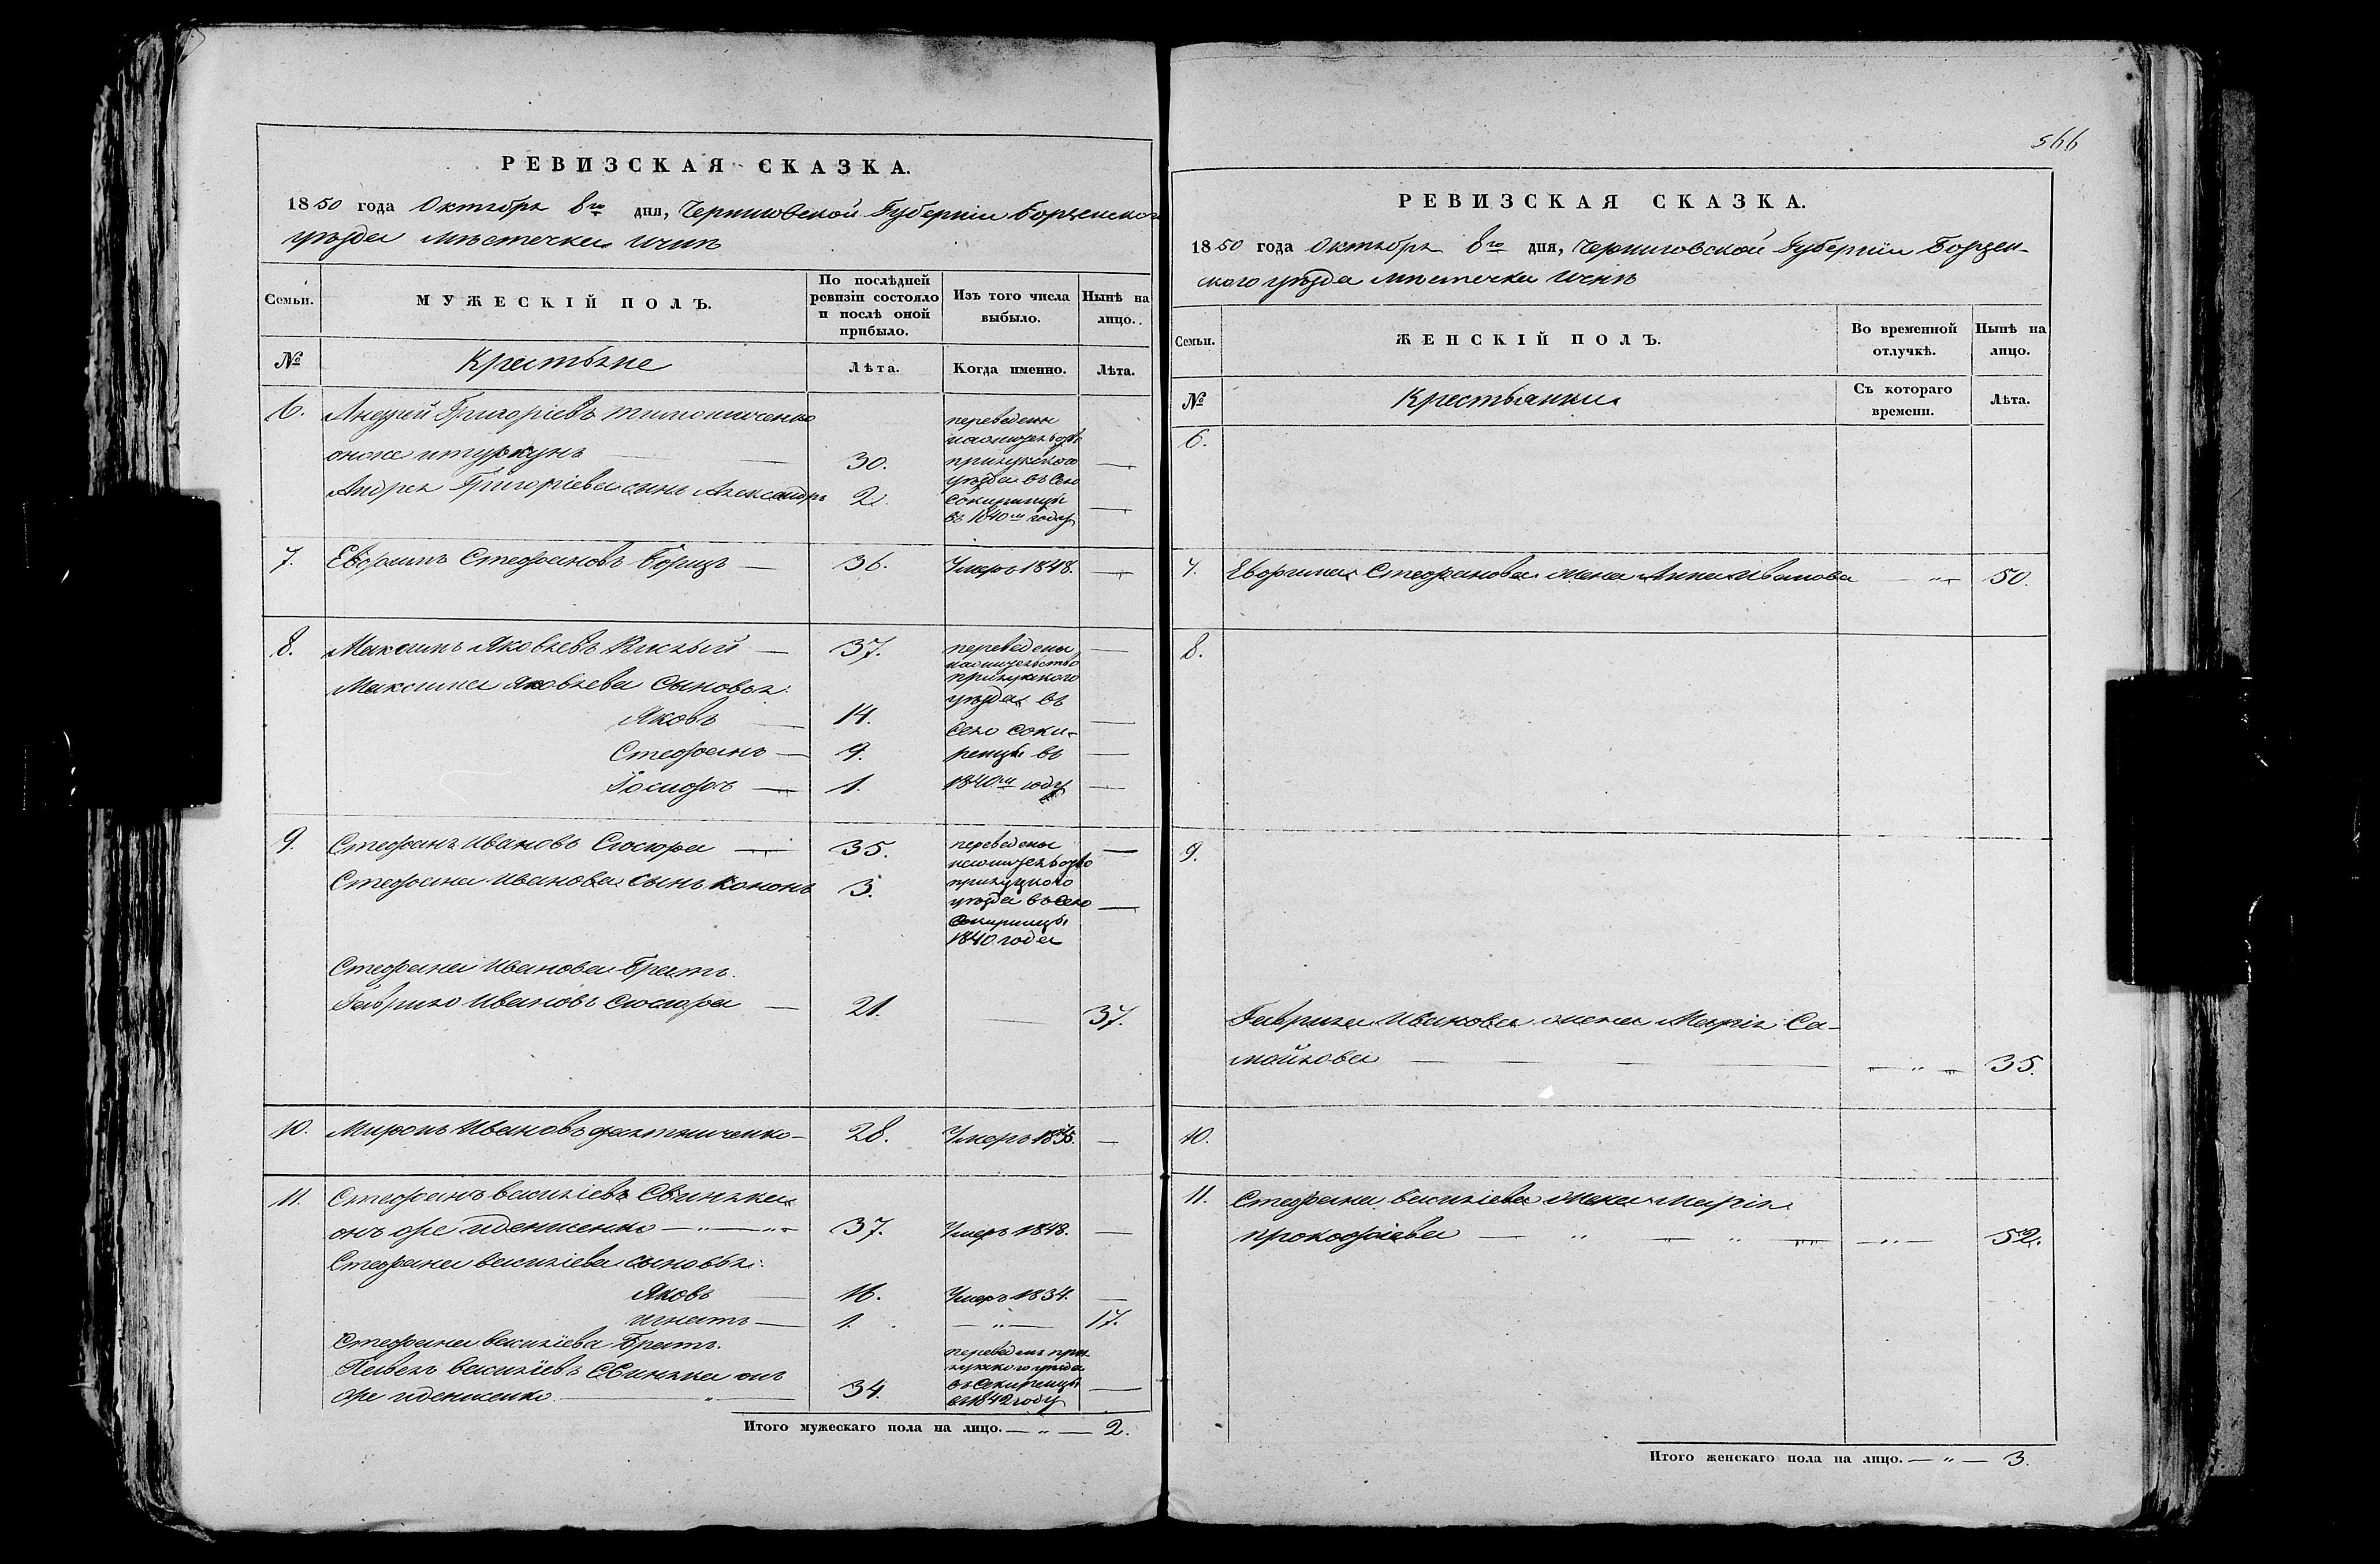 РЕВИЗСКАЯ СКАЗКА.
1850 года Октября 8го дня, Черниговской Губерніи Борзенского
уѣзда мѣстечка Ични
Семьи.
МУЖЕСКІЙ ПОЛЪ.
По послѣдней ревизіи состояло и послѣ оной прибыло.
Изъ того числа выбыло.
Нынѣ на лицо.
№ Крестьяне Лѣта. Когда именно. Лѣта.
6. Андрей Григоріевъ
онже 30.
Андрея Григоріева сынъ Александръ 2.
переведены
на жительство
прилукского
уѣзда въ село
Сокиринцы
въ 1840м году
7. Евфимъ Стефановъ Борщъ 36. Умеръ 1848.
8. Максимъ Яковлевъ Кислый 37.
Максима Яковлева Сыновья:
Яковъ 14.
Стефанъ 9.
Іосифъ 1.
переведены
на жительство
прилукского
уѣзда въ
село Соки-
ренцы въ
1840м году
9. Стефанъ Ивановъ Слюсюра 35.
Стефана Иванова сынъ Кононъ 3.
переведены
на жительство
прилуцкого
уѣзда въ село
Сокиринцы
1840 года
Стефана Иванова Братъ.
Гаврило Ивановъ Слюсюра 21. 37.
10. Миронъ Ивановъ 28. Умеръ 1835.
11. Стефанъ Василіевъ Свинька
онъ же 37. Умеръ 1848.
Стефана Василіева сыновья:
Яковъ 16. Умеръ 1834.
Игнатъ 1. 17.
Стефана Василіева Братъ.
Павелъ Василіевъ Свинька онъ
же 34.
переведенъ при-
лукского уѣзда
въ Сокиренцы
въ 1842 году
Итого мужескаго пола на лицо. 2.
566
РЕВИЗСКАЯ СКАЗКА.
1850 года Октября 8го дня, Черниговской Губерніи Борзен-
ского уѣзда мѣстечка Ични
Семьи.
ЖЕНСКІЙ ПОЛЪ.
Во временной отлучкѣ.
Нынѣ на лицо.
№ Крестьянки Съ котораго времени. Лѣта.
6.
7. Евфима Стефанова жена Анна Иванова 50.
8.
9.
Гаврила Иванова жена Марія Са-
мойлова 35.
10.
11. Стефана Василіева жена Марія
Прокофіева 52.
Итого женскаго пола на лицо. 3.